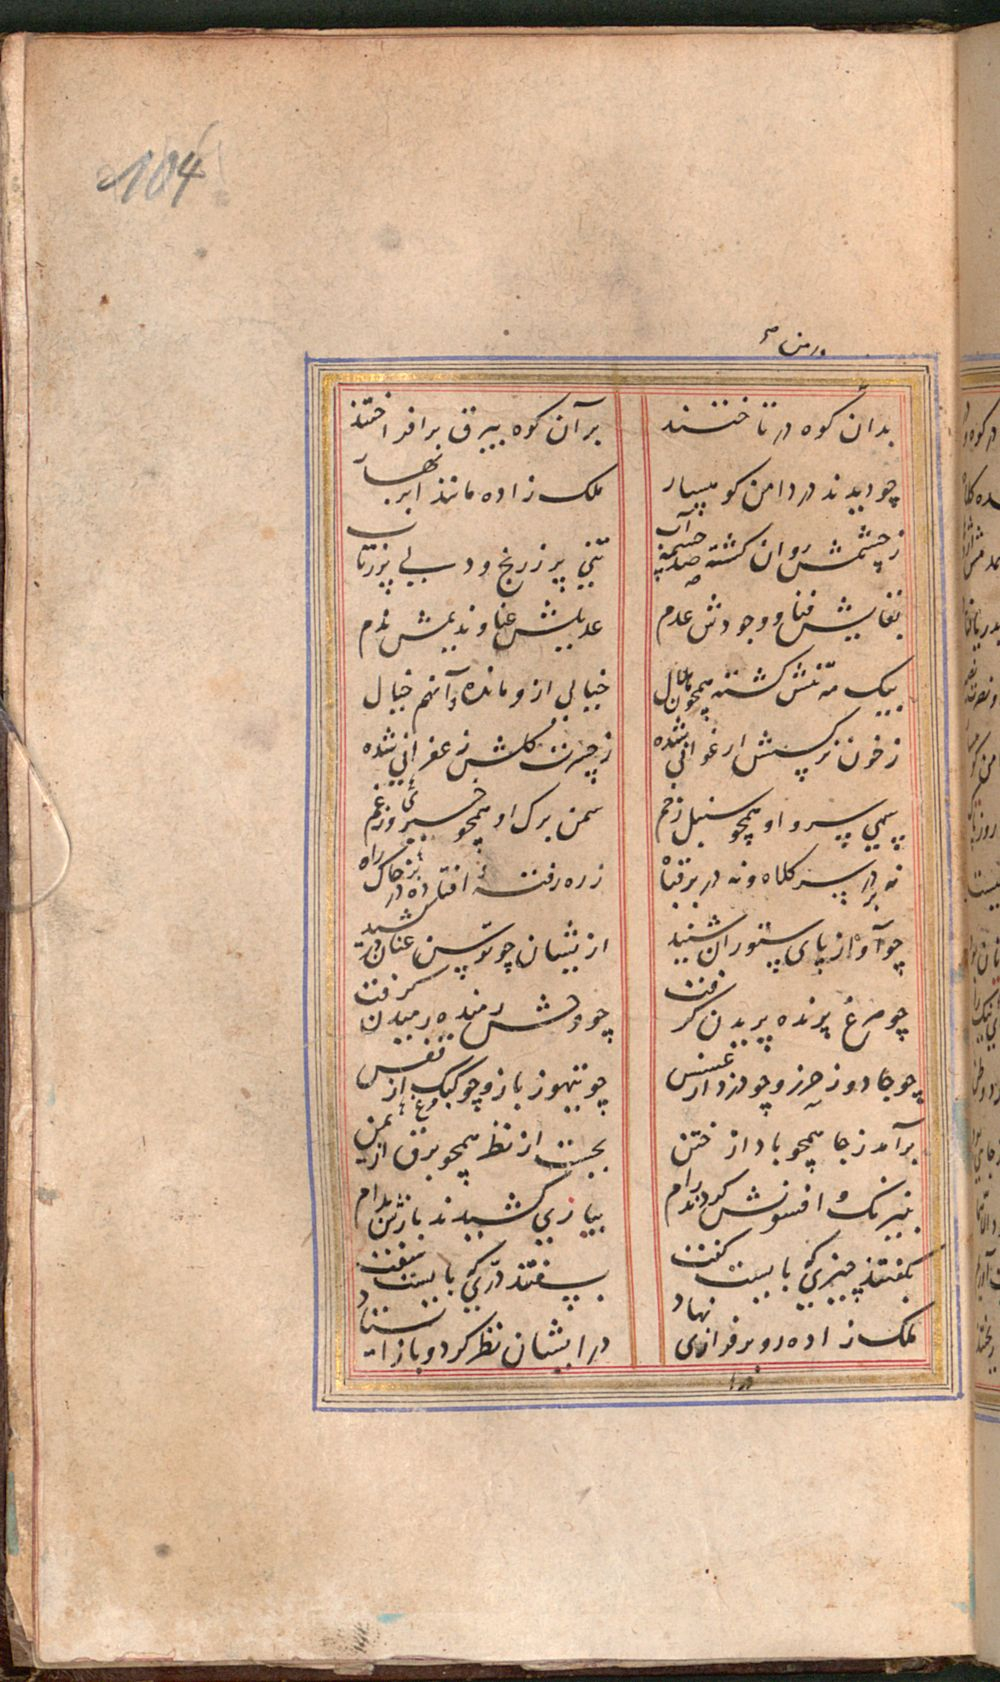 104
بدان کوه در تاختند
بر آن کوه بیرق برافراختند
چو دیدند در دامن کوهسار
ملک زاده مانند ابر بهار
ز چشمش روان گشته چشمه آب
تنی پر ز رنج و دلی پر ز تاب
بقایش فنا و وجودش عدم
عدیلش عنا و ندیمش ندم
بیک مه تنش گشته همچون هلال
خیالی ازو مانده و آنهم خیال
ز خون نرگسش ارغوانی شده
ز حسرت گلش زعفرانی شده
سهی سرو او همچو سنبل ز خم
سمن برگ او همچو خیری ز غم
نه بر سر کلاه و نه در بر قباه
ز ره رفته افتاده در خاک راه
چو آواز پای ستوران شنید
ازیشان چو توسن عنان در کشید
چو مرغ پرنده پریدن گرفت
چو وحش رمنده رمیدن گرفت
چو جادو ز حرز و چو دزد از عسس
چو تیهو ز باز و چو کبک از قفس
برآمد ز جا همچو باد از ختن
بجست از نظر همچو برق از یمن
به نیرنگ و افسونش کردند رام
ببازی کشیدند بازش بدام
بگفتند چیزی که بایست گفت
بسفتند دری که بایست سفت
ملک زاده رو بر فرازی نهاد
در ایشان نظر کرد و باز ایستاد